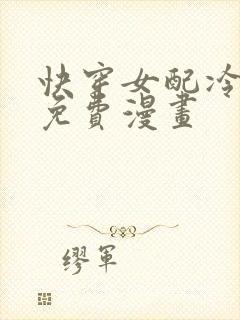 快穿女配冷
免費漫畫
繆軍